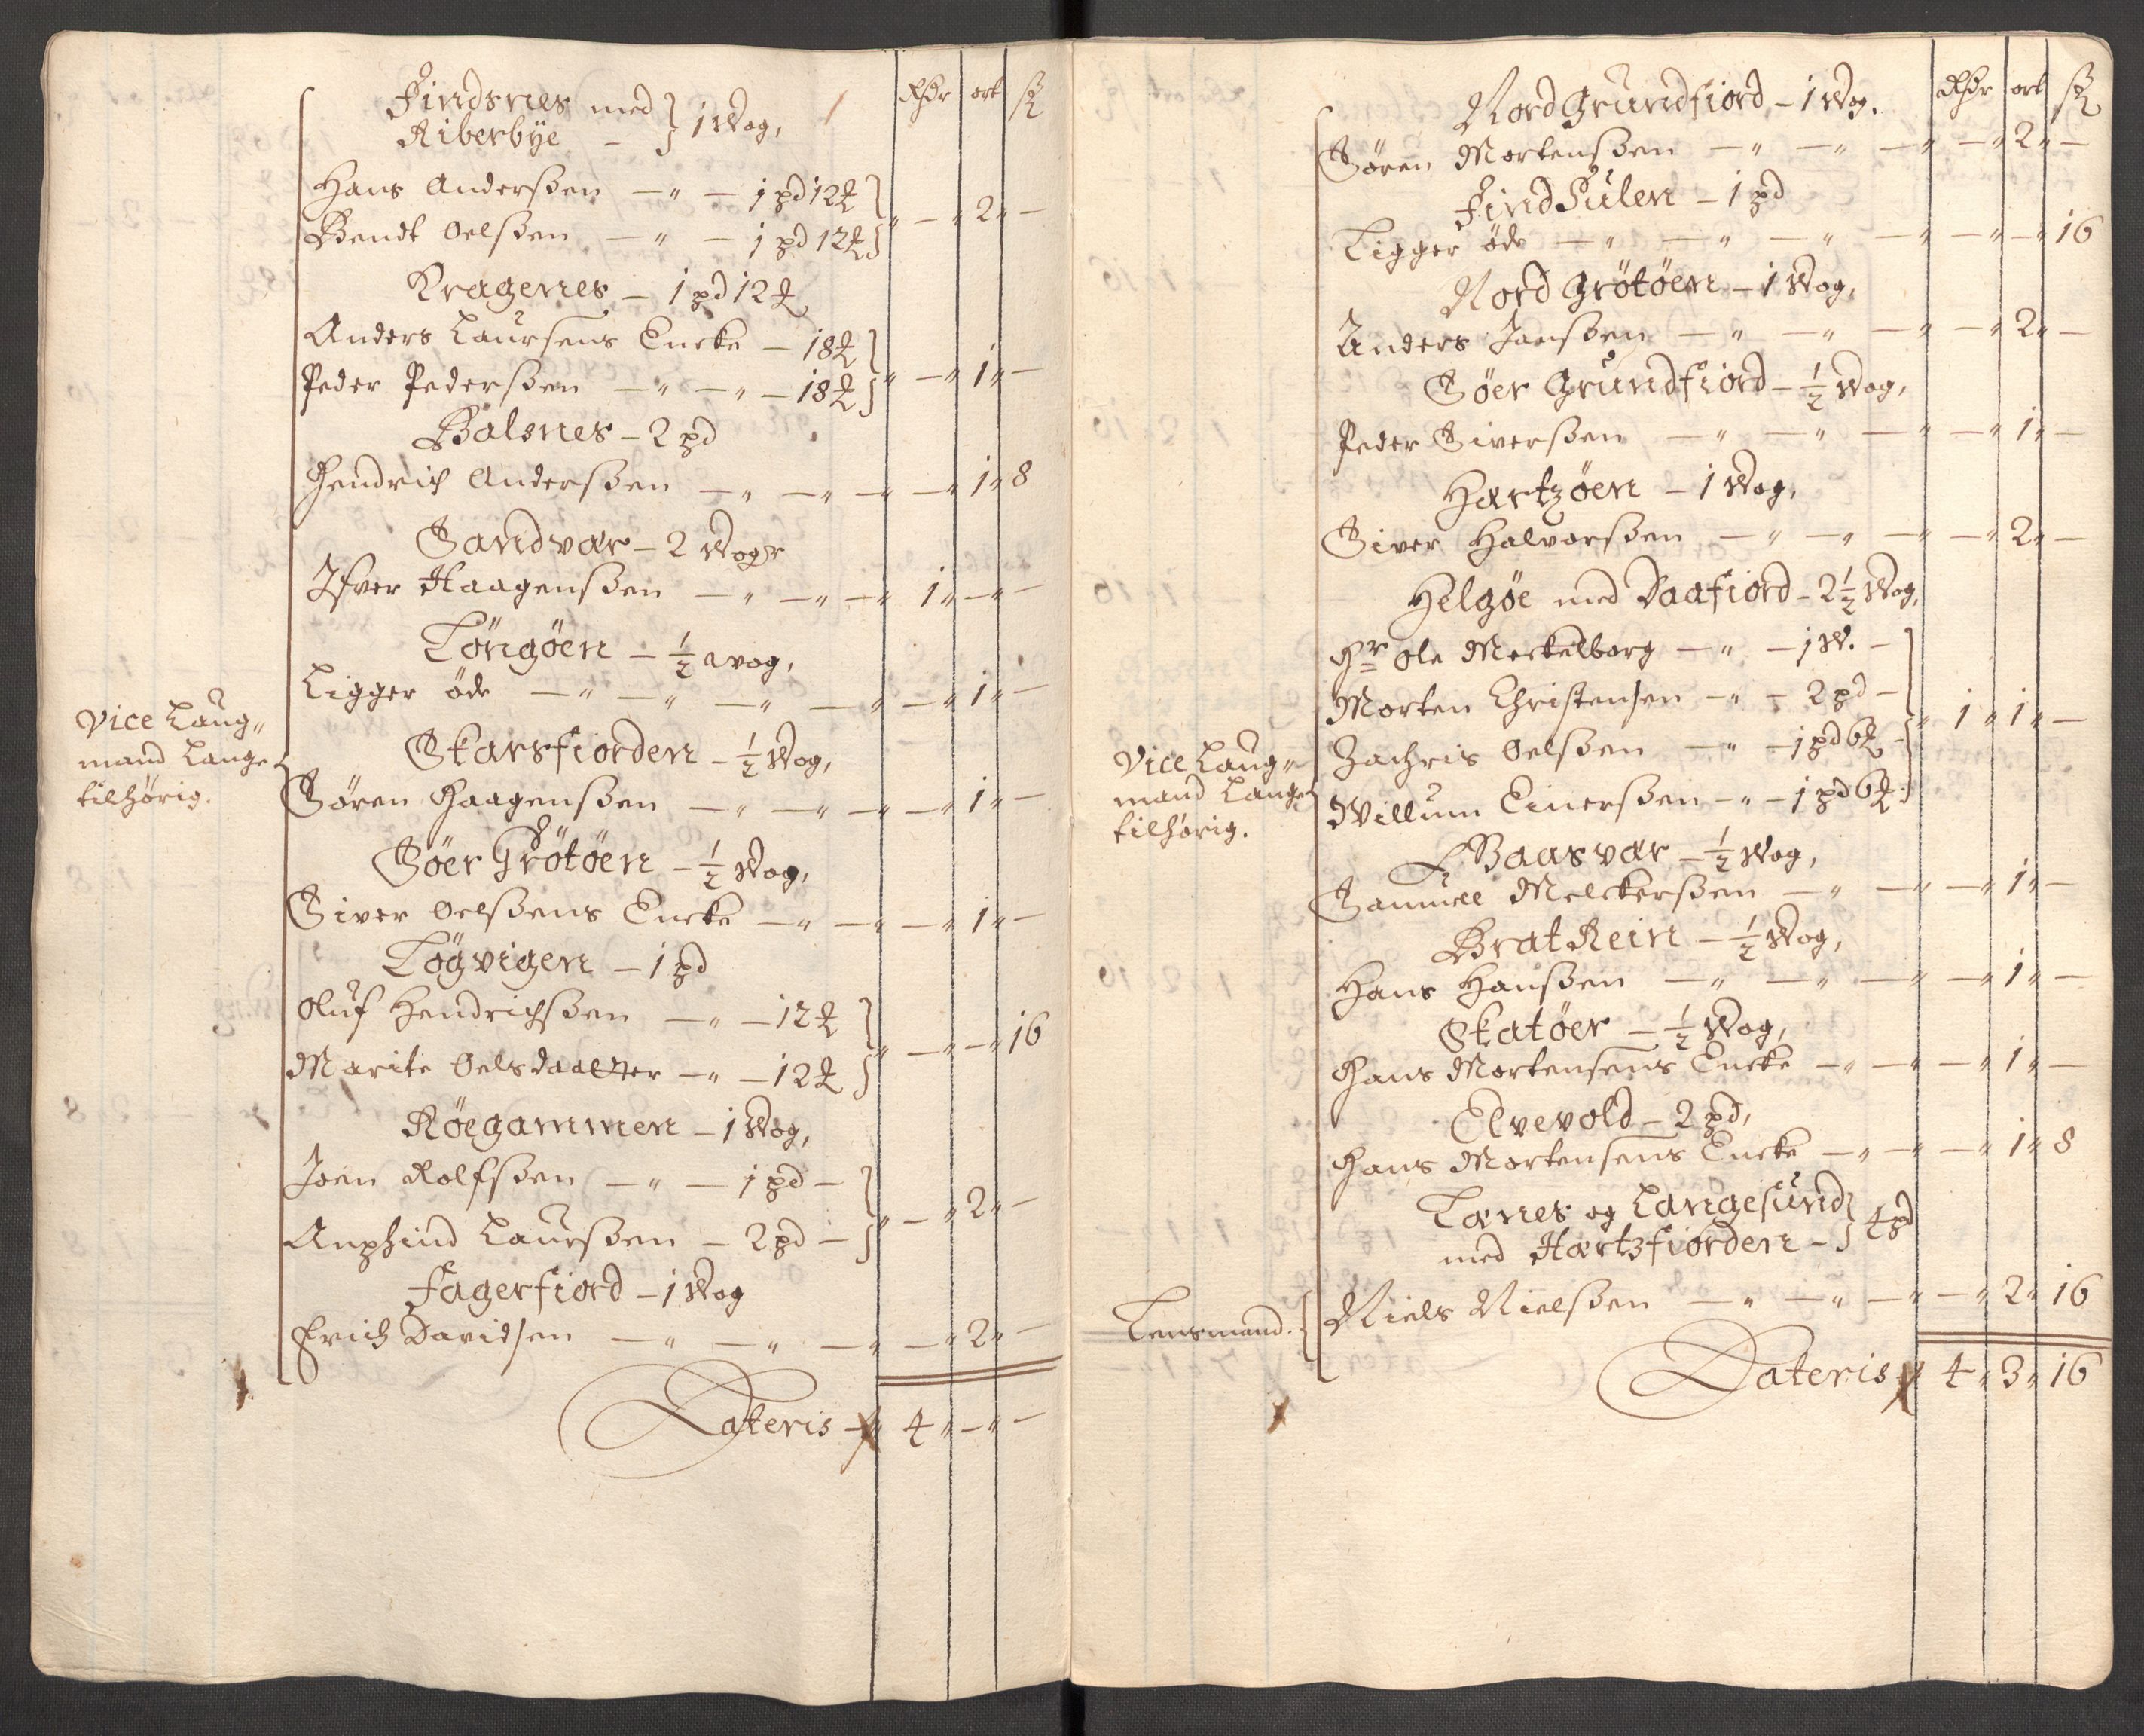 Rdr ort ß
Findsnes med } 1 Wog,
Riberbÿe - }
Hans Anderßen - " - 1 pd 12 ℔ }
Bendt Oelßen - " - 1 pd 12 ℔ } " - " 2 " -
Kragenes - 1 pd 12 ℔
Anders Laursens Encke - 18 ℔ }
Peder Pederßen - " - " - 18 ℔ } " - " 1 " -
Balsnes - 2 pd
Hendrich Anderßen - " - " - " - " 1 " 8
Sandvær - 2 Woger
Ifver Haagenßen - " - " - " 1 " - " -
Töngöen - ½ Wog,
Ligger öde - " - " - " - " - " 1 " -
Vice Laug„
mand Lange
tilhörig.
Skarsfiorden - ½ Wog,
Sören Haagenßen - " - " - " - " 1 " -
Söer Grötöen - ½ Wog,
Siver Oelßens Encke - " - " - " 1 " -
Lögvigen - 1 pd
Oluf Hendrichßen - " - 12 ℔ }
Marite Oelsdaatter - " - 12 ℔ } " - " - " 16
Röegammen - 1 Wog,
Joen Rolfßen - " - 1 pd - }
Anphind Laurßen - 2 pd - } " - " 2 " -
Fagerfiord - 1 Wog
Erich Davidsen - " - " - " - " 2 " -
Lateris - " 4 " - " -
Rdr ort ß
Nord Grundfiord - 1 Wog.
Sören Mortenßen - " - " - " - " 2 " -
Find Sulen - 1 pd
Ligger öde - " - " - " - " - " - " 16
Nord Grötöen - 1 Wog,
Anders Janßen - " - " - " - " 2 " -
Söer Grundfiord - ½ Wog,
Peder Siverßen - " - " - " - " 1 " -
Hærtzöen - 1 Wog,
Siver Halvorßen - " - " - " - " 2 " -
Helgöe med Daafiord - 2½ Wog,
Hr Ole Meckelborg - " - 1 W. - }
Morten Christensen - " - 2 pd - }
Zachris Oelßen - " - 1 pd 6 ℔ - } " 1 " 1 " -
Willum Einerßen - " - 1 pd 6 ℔ }
Vice Laug„
mand Lange
tilhörig.
Baasvær - ½ Wog,
Samuel Melckerßen - " - " - " 1 " -
Brat Rein - ½ Wog,
Hans Hanßen - " - " - " - " 1 " -
Skatöer - ½ Wog,
Hans Mortensens Encke - " - " - " 1 " -
Elvevold - 2 pd,
Hans Mortensens Encke - " - " - " 1 " 8
Tænes og Langesund } 4 pd
med Hærtzfiorden - }
Lensmand. { Niels Nielßen - " - " - " - " 2 " 16
Lateris " 4 " 3 " 16